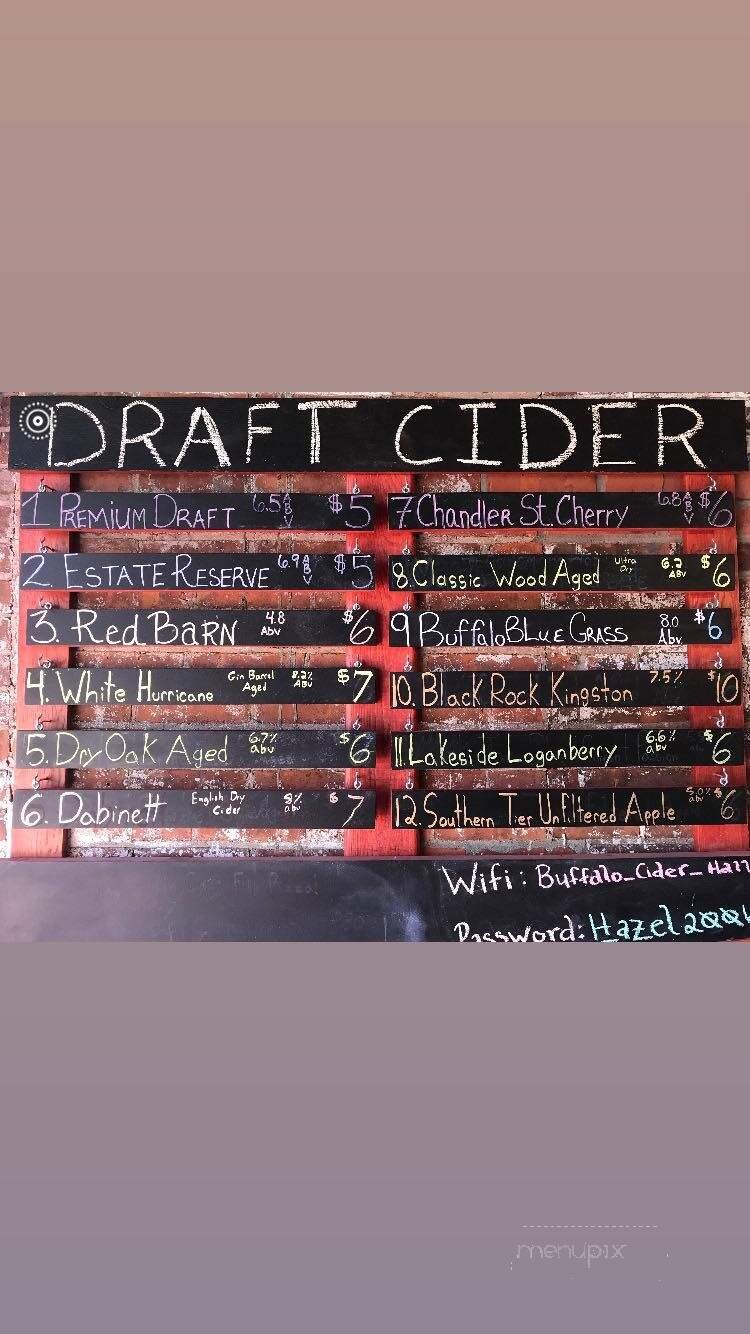 DRAFT CIDER
1 PREMIUM DRAFT 6.5 ABV $5
2. ESTATE RESERVE 6.9 ABV $5
3. Red BARN 4.8 Abv $6
4. White Hurricane Gin Barrel Aged 8.2% ABV $7
5. Dry Oak Aged 6.7% abv $6
6. Dabinett English Dry Cider 8% abv $7
7 Chandler St. Cherry 6.8 ABV $6
8. Classic Wood Aged Ultra Dry 6.2 ABV $6
9 Buffalo BLUE GRASS 8.0 Abv. $6
10. Black Rock Kingston 7.5% $10
11. Lakeside Loganberry 6.6% abv $6
12. Southern Tier Unfiltered Apple 5.0% abv $6
Wifi: Buffalo_Cider_
Password:
menupix